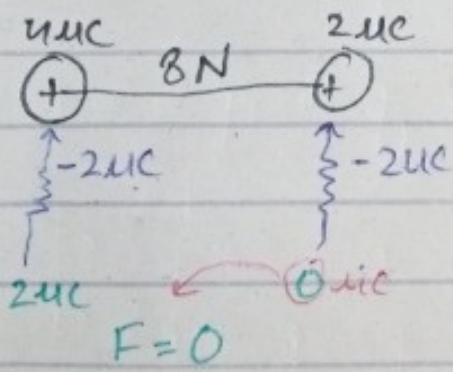 4μC 2μC
8N
+ +
-2μC -2μC
2μC 0 μC
F = 0